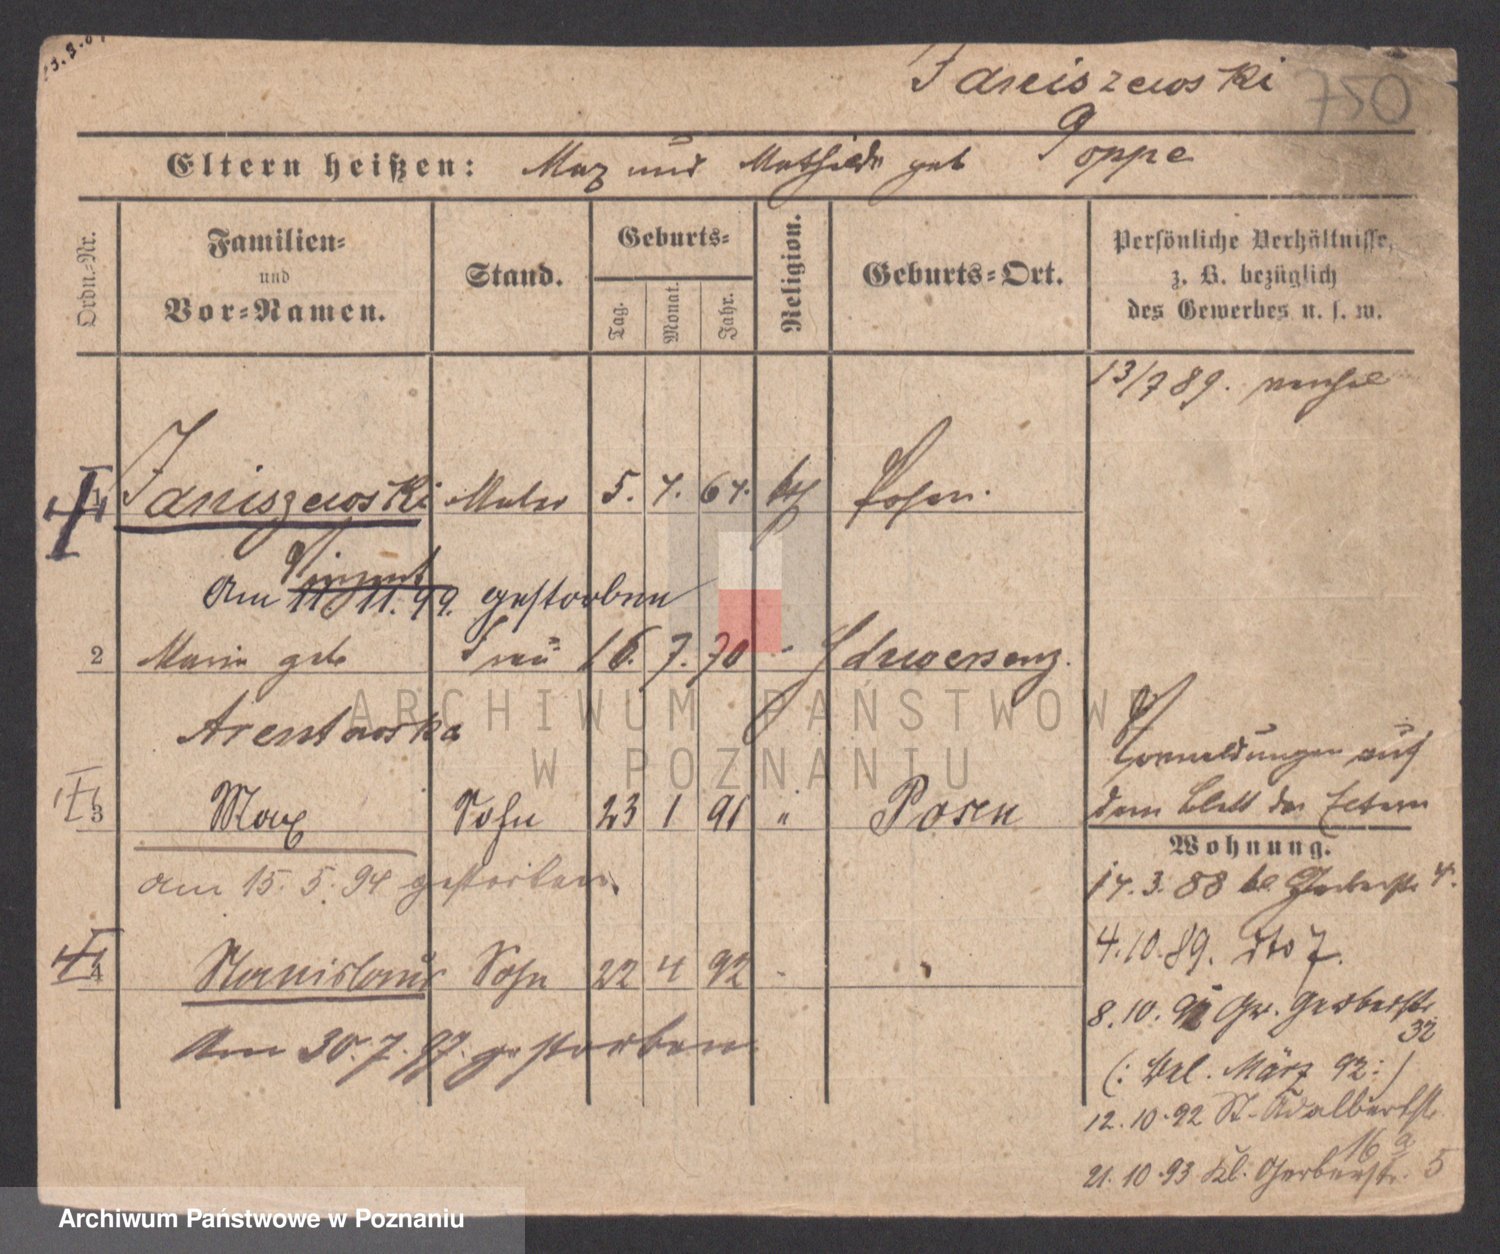 Janiszewski 750
Eltern heißen: Max und Mathilde geb Poppe
Ordn.-Nr.
Familien-
und
Vor-Namen.
Stand.
Geburts-
Tag.
Monat.
Jahr.
Religion.
Geburts-Ort.
Persönliche Verhältnisse,
z. B. bezüglich
des Gewerbes u. s. w.
13/7 89.
1 Janiszewski Maler 5. 7. 67. Posen.
Vinzent
am 11. 11. 99. gestorben
2 Maria geb Frau 16. 7. 70 - Schwersenz.
Arentowska
Vormeldungen auf
dem Blatt der Eltern
3 Max Sohn 23 1 91 " Posen
am 15. 5. 94 gestorben
Wohnung.
17. 3. 88 kl. Gerberstr 4.
4. 10. 89. dto 7.
4 Stanislaus Sohn 22 4 92 -
8. 10. 91 Gr. Gerberstr
32
Am 30. 7. 97. gestorben
(: März 92 :)
12. 10. 92 St. Adalbertstr
16 a
21. 10. 93 Kl. Gerberstr. 5
ARCHIWUM PAŃSTWOWE
W POZNANIU
Archiwum Państwowe w Poznaniu